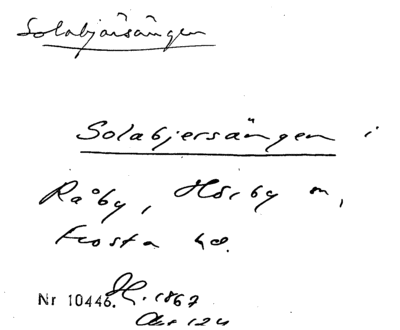 Solabjärsängen
Solabjersängen i
Råby, Hörby sn,
Frosta hd.
Nr 10446. 1867